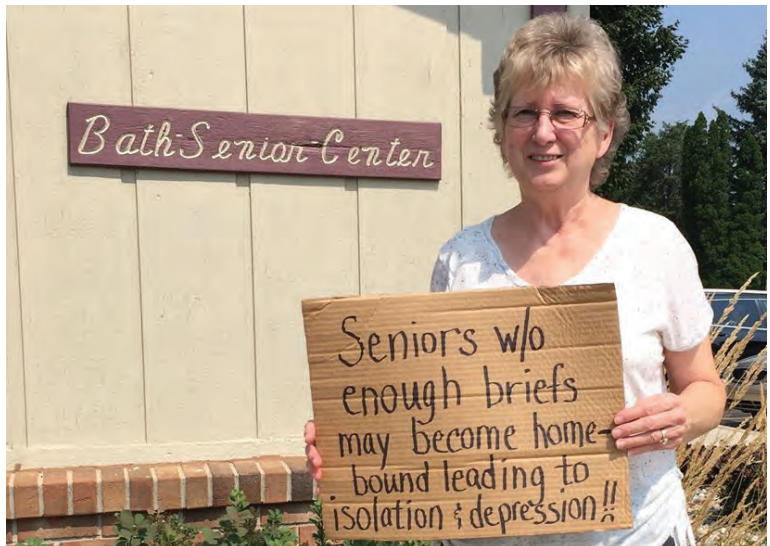 Bath Senior Center
Seniors w/o
enough briefs
may become home-
bound leading to
isolation & depression!!